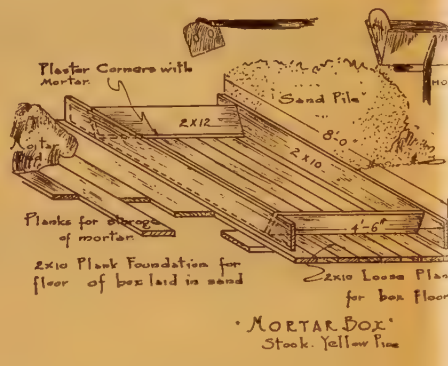 Plaster Corners with
Mortar.
"Sand Pile"
2x12
8'-0
2x10
Mortar
Planks for storage
of mortar
4'-6"
2x10 Plank Foundation for
floor of box laid in sand
2x10 Loose
for box
"MORTAR BOX"
Stock. Yellow Pine